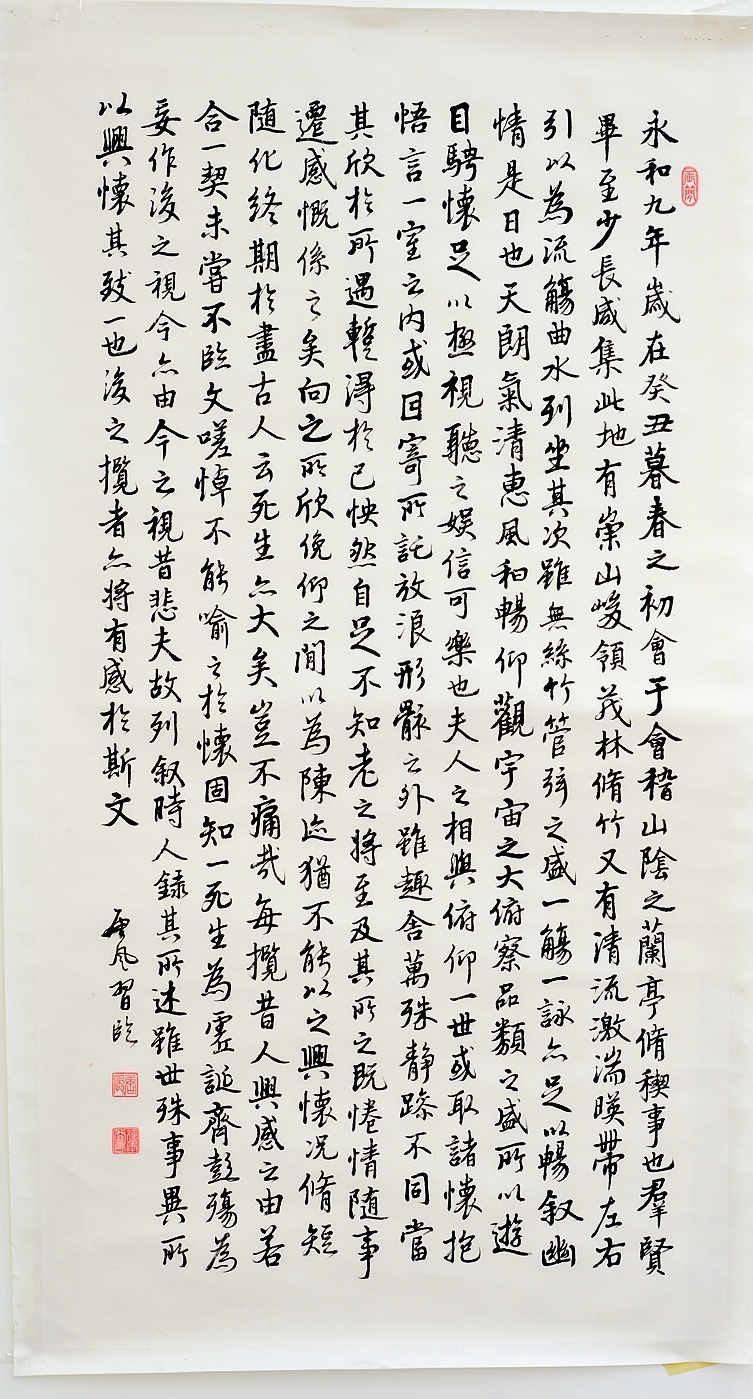 永和九年歲在癸丑暮春之初會于會稽山陰之蘭亭脩稧事也羣賢
畢至少長咸集此地有崇山峻領茂林脩竹又有清流激湍暎帶左右
引以為流觴曲水列坐其次雖無絲竹管弦之盛一觴一詠亦足以暢叙幽
情是日也天朗氣清惠風和暢仰觀宇宙之大俯察品類之盛所以遊
目騁懷足以極視聽之娛信可樂也夫人之相與俯仰一世或取諸懷抱
悟言一室之内或因寄所託放浪形骸之外雖趣舍萬殊静躁不同當
其欣於所遇蹔得於己怏然自足不知老之將至及其所之既惓情隨事
遷感慨係之矣向之所欣俛仰之閒以為陳迹猶不能以之興懷况脩短
隨化終期於盡古人云死生亦大矣豈不痛哉每攬昔人興感之由若
合一契未嘗不臨文嗟悼不能喻之於懷固知一死生為虛誕齊彭殤為
妄作後之視今亦由今之視昔悲夫故列叙時人録其所述雖世殊事異所
以興懷其致一也後之攬者亦將有感於斯文
風習臨